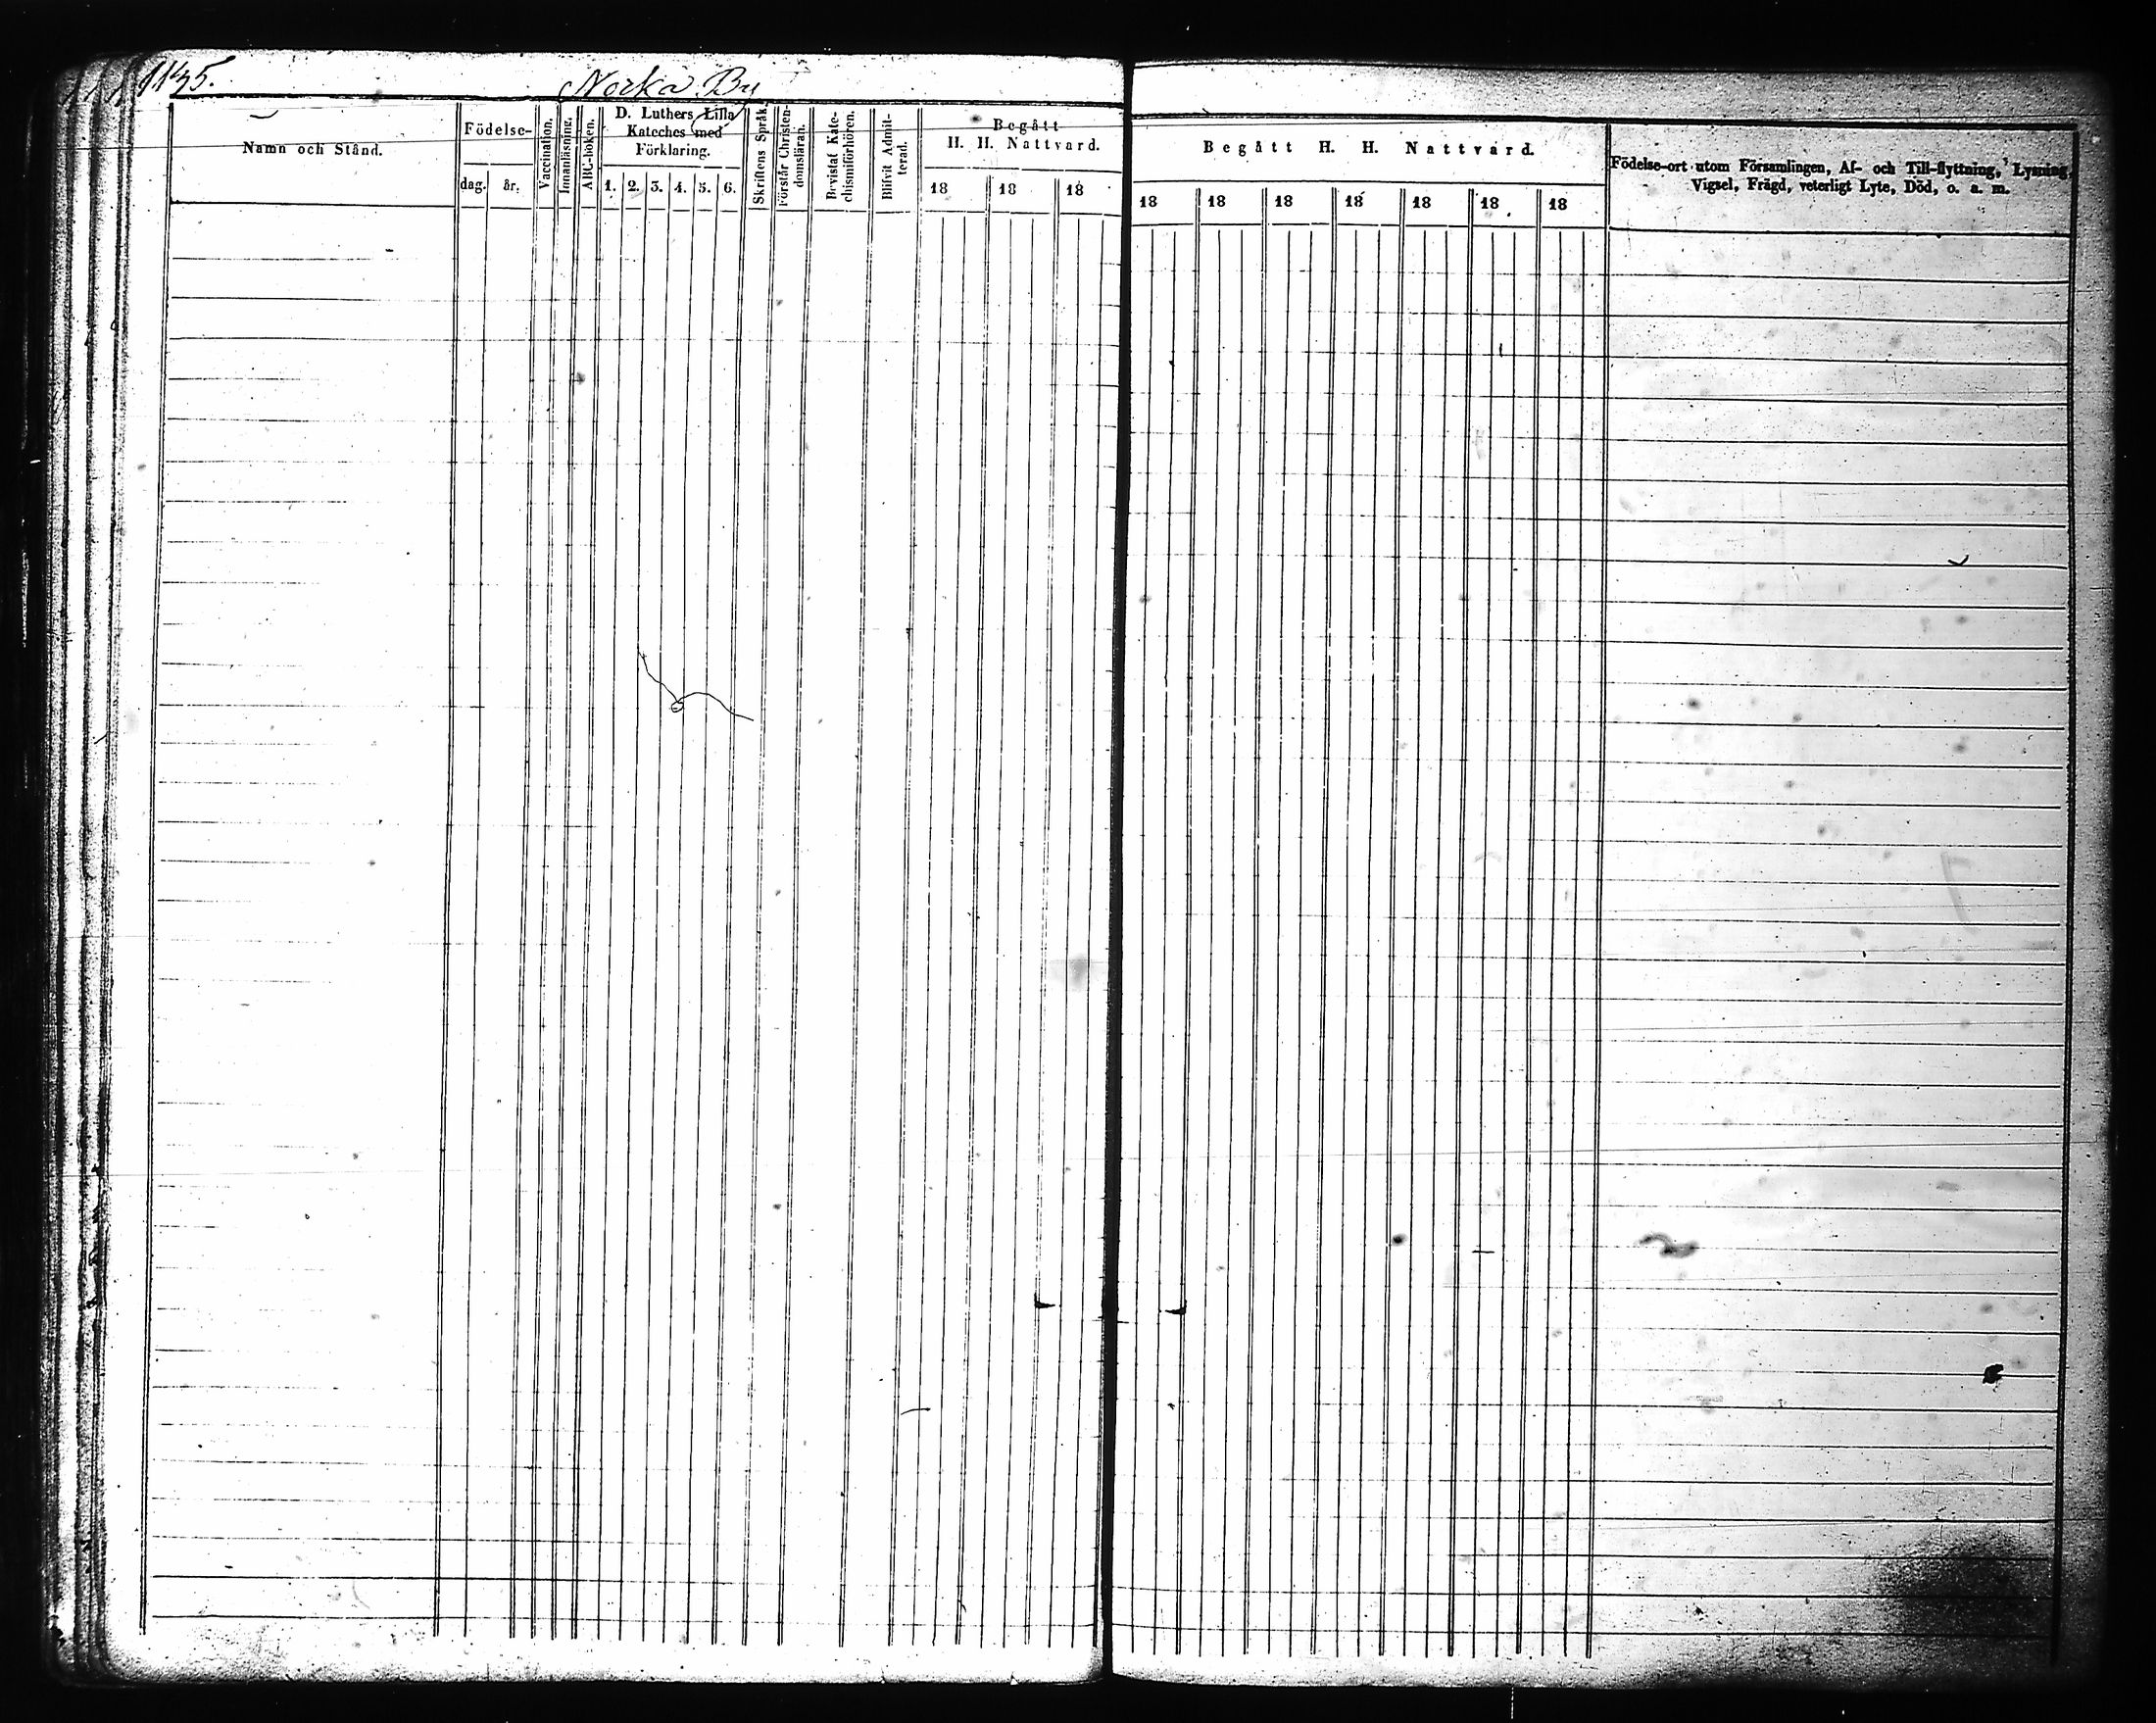 1135.
Norka By
Namn och Stånd.
Födelse-
dag. år.
Vaccination.
Innanläsning.
ABC-boken.
D. Luthers Lilla
Kateches med
Förklaring.
1. 2. 3. 4. 5. 6.
Skriftens Språk.
Förstår Christen-
domsläran.
Bevistat Kate-
chismiförhören.
Blifvit Admit-
terad.
Begått
H. H. Nattvard.
18 18 18
Begått H. H. Nattvard.
18 18 18 18 18 18 18
Födelse-ort utom Församlingen, Af- och Till-flyttning, Lysning,
Vigsel, Frägd, veterligt Lyte, Död, o. a. m.